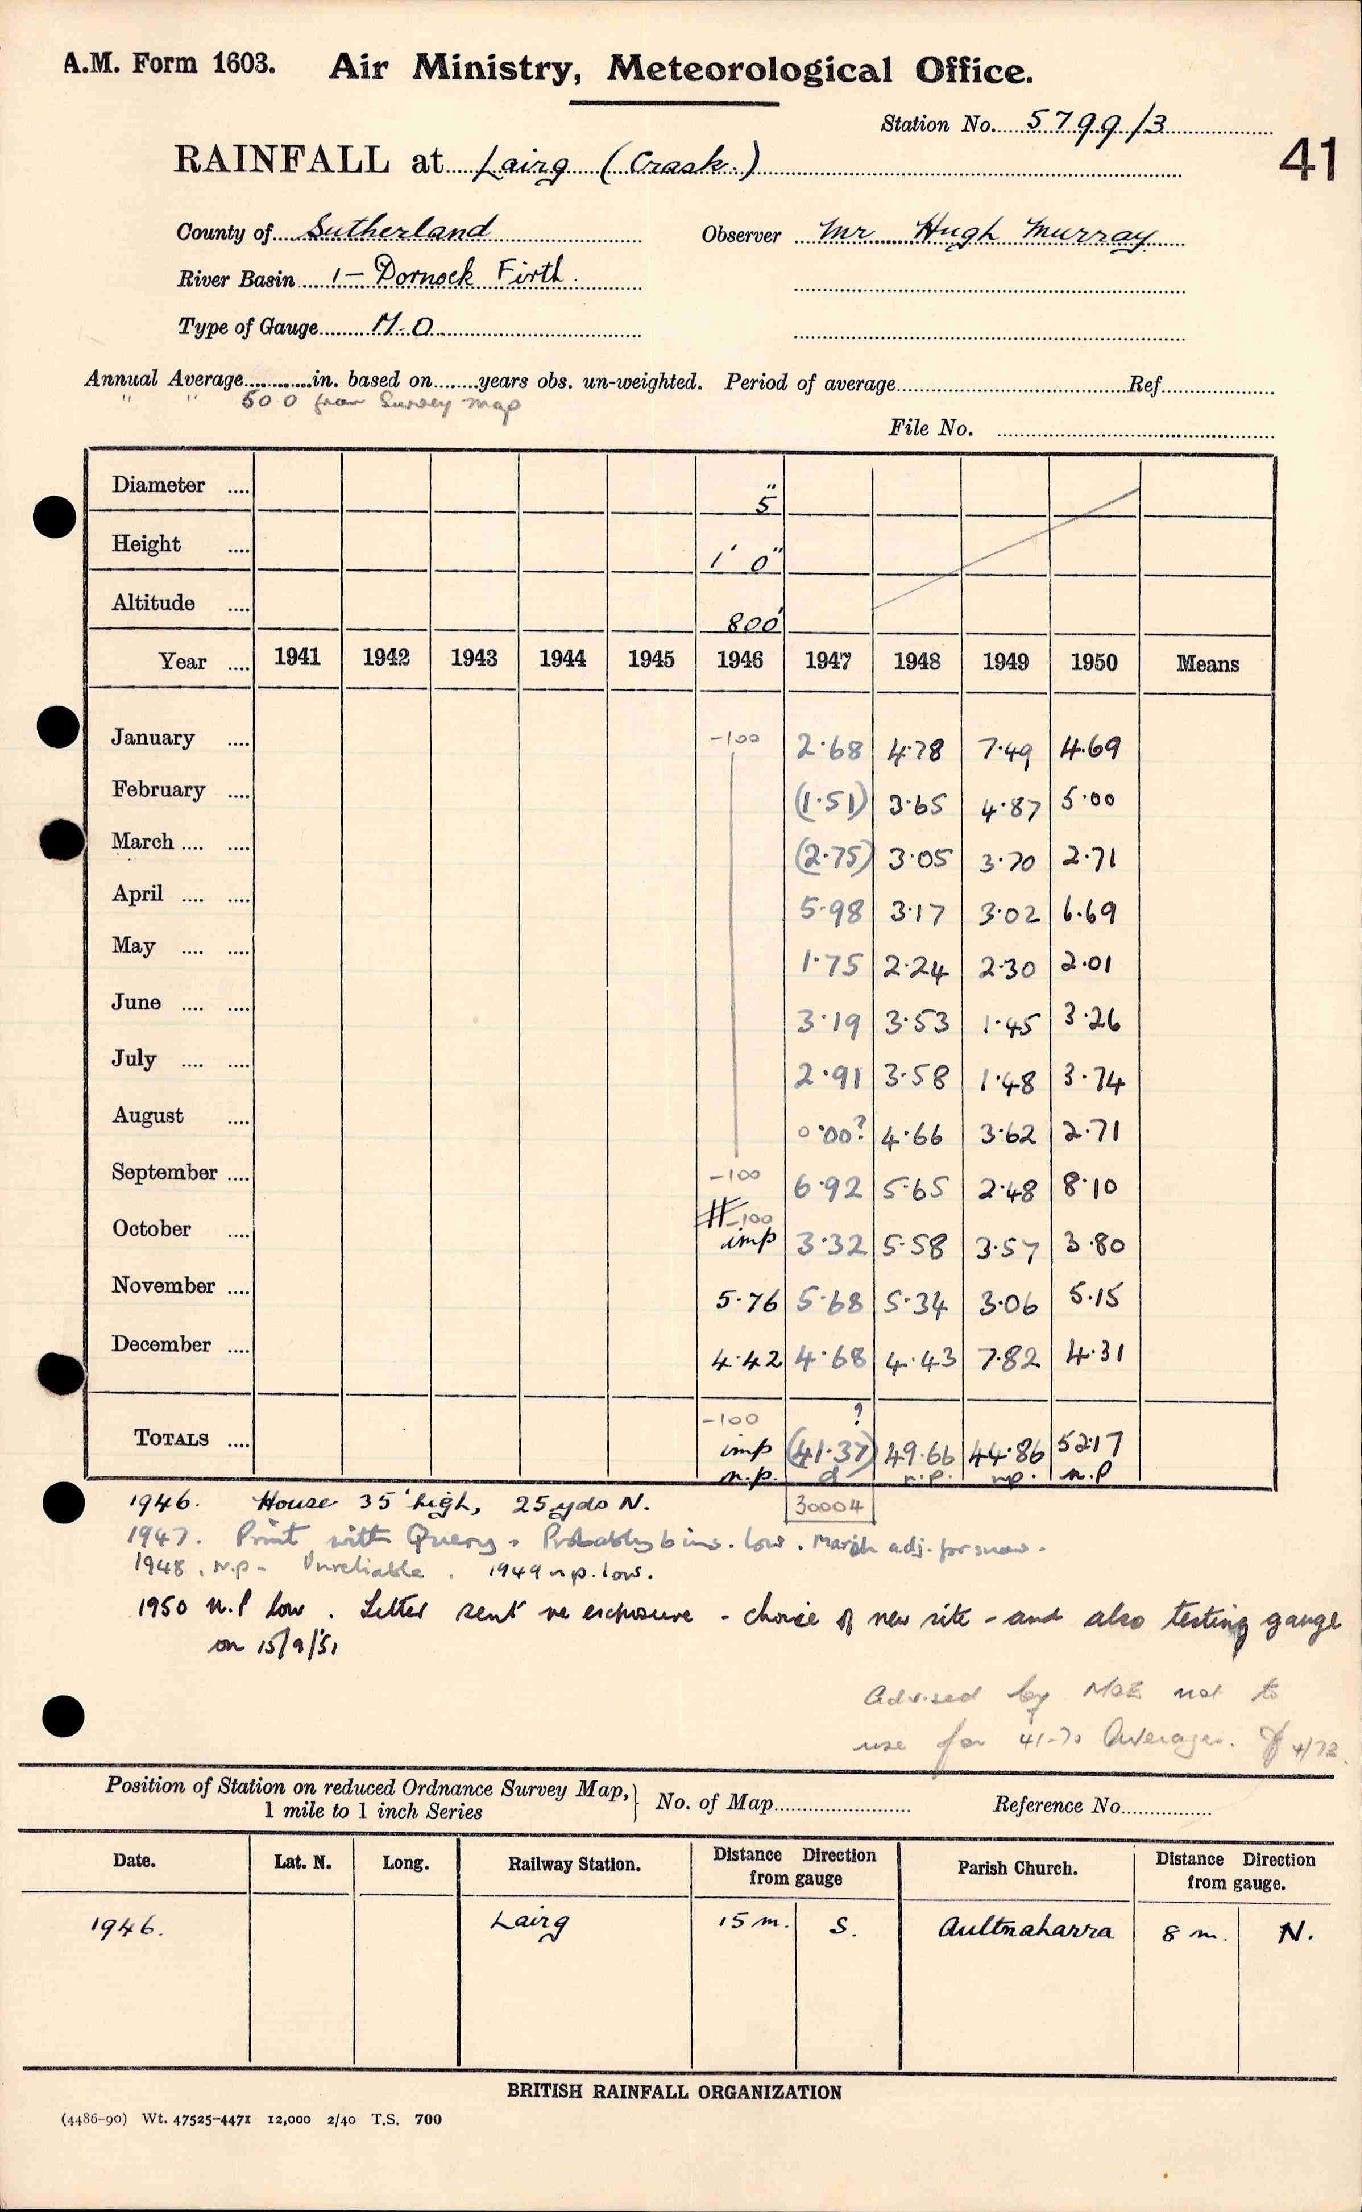 A.M. Form 1603. Air Ministry, Meteorological Office.
Station No. 5799/3
41
RAINFALL at Lairg (Crask.)
County of Sutherland Observer Mr Hugh Murray
River Basin 1 - Dornock Firth.
Type of Gauge M.O
Annual Average in. based on years obs. un-weighted. Period of average Ref.
" " 50 0 from Survey map
File No.
Diameter .... 5"
Height .... 1' 0"
Altitude .... 800'
Year .... 1941 1942 1943 1944 1945 1946 1947 1948 1949 1950 Means
January .... -100 2.68 4.78 7.49 4.69
February .... (1.51) 3.65 4.87 5.00
March .... .... (2.75) 3.05 3.70 2.71
April .... .... 5.98 3.17 3.02 6.69
May .... .... 1.75 2.24 2.30 2.01
June .... .... 3.19 3.53 1.45 3.26
July .... .... 2.91 3.58 1.48 3.74
August .... 0.00? 4.66 3.62 2.71
September .... -100 6.92 5.65 2.48 8.10
October .... -100 imp 3.32 5.58 3.57 3.80
November .... 5.76 5.68 5.34 3.06 5.15
December .... 4.42 4.68 4.43 7.82 4.31
-100 ?
TOTALS .... imp (41.37) 49.66 44.86 52.17
n.p. d n.p. n.p. n.P
30004
1946. House 35' high, 25 yds N.
1947. Print with Query. Probably 6 ins. low. March adj. for snow.
1948. N.p - Unreliable. 1949 n.p. low.
1950 n.P low. Letter sent re exposure - choice of new site - and also testing gauge
on 15/9/51
Advised by MOE not to
use for 41-70 Averages. 4/72.
Position of Station on reduced Ordnance Survey Map,} No. of Map Reference No.
1 mile to 1 inch Series
Date. Lat. N. Long. Railway Station. Distance Direction from gauge Parish Church. Distance Direction from gauge.
1946. Lairg 15 m. S. Aultnaharra 8 m. N.
BRITISH RAINFALL ORGANIZATION
(4486-90) Wt. 47525-4471 12,000 2/40 T.S. 700